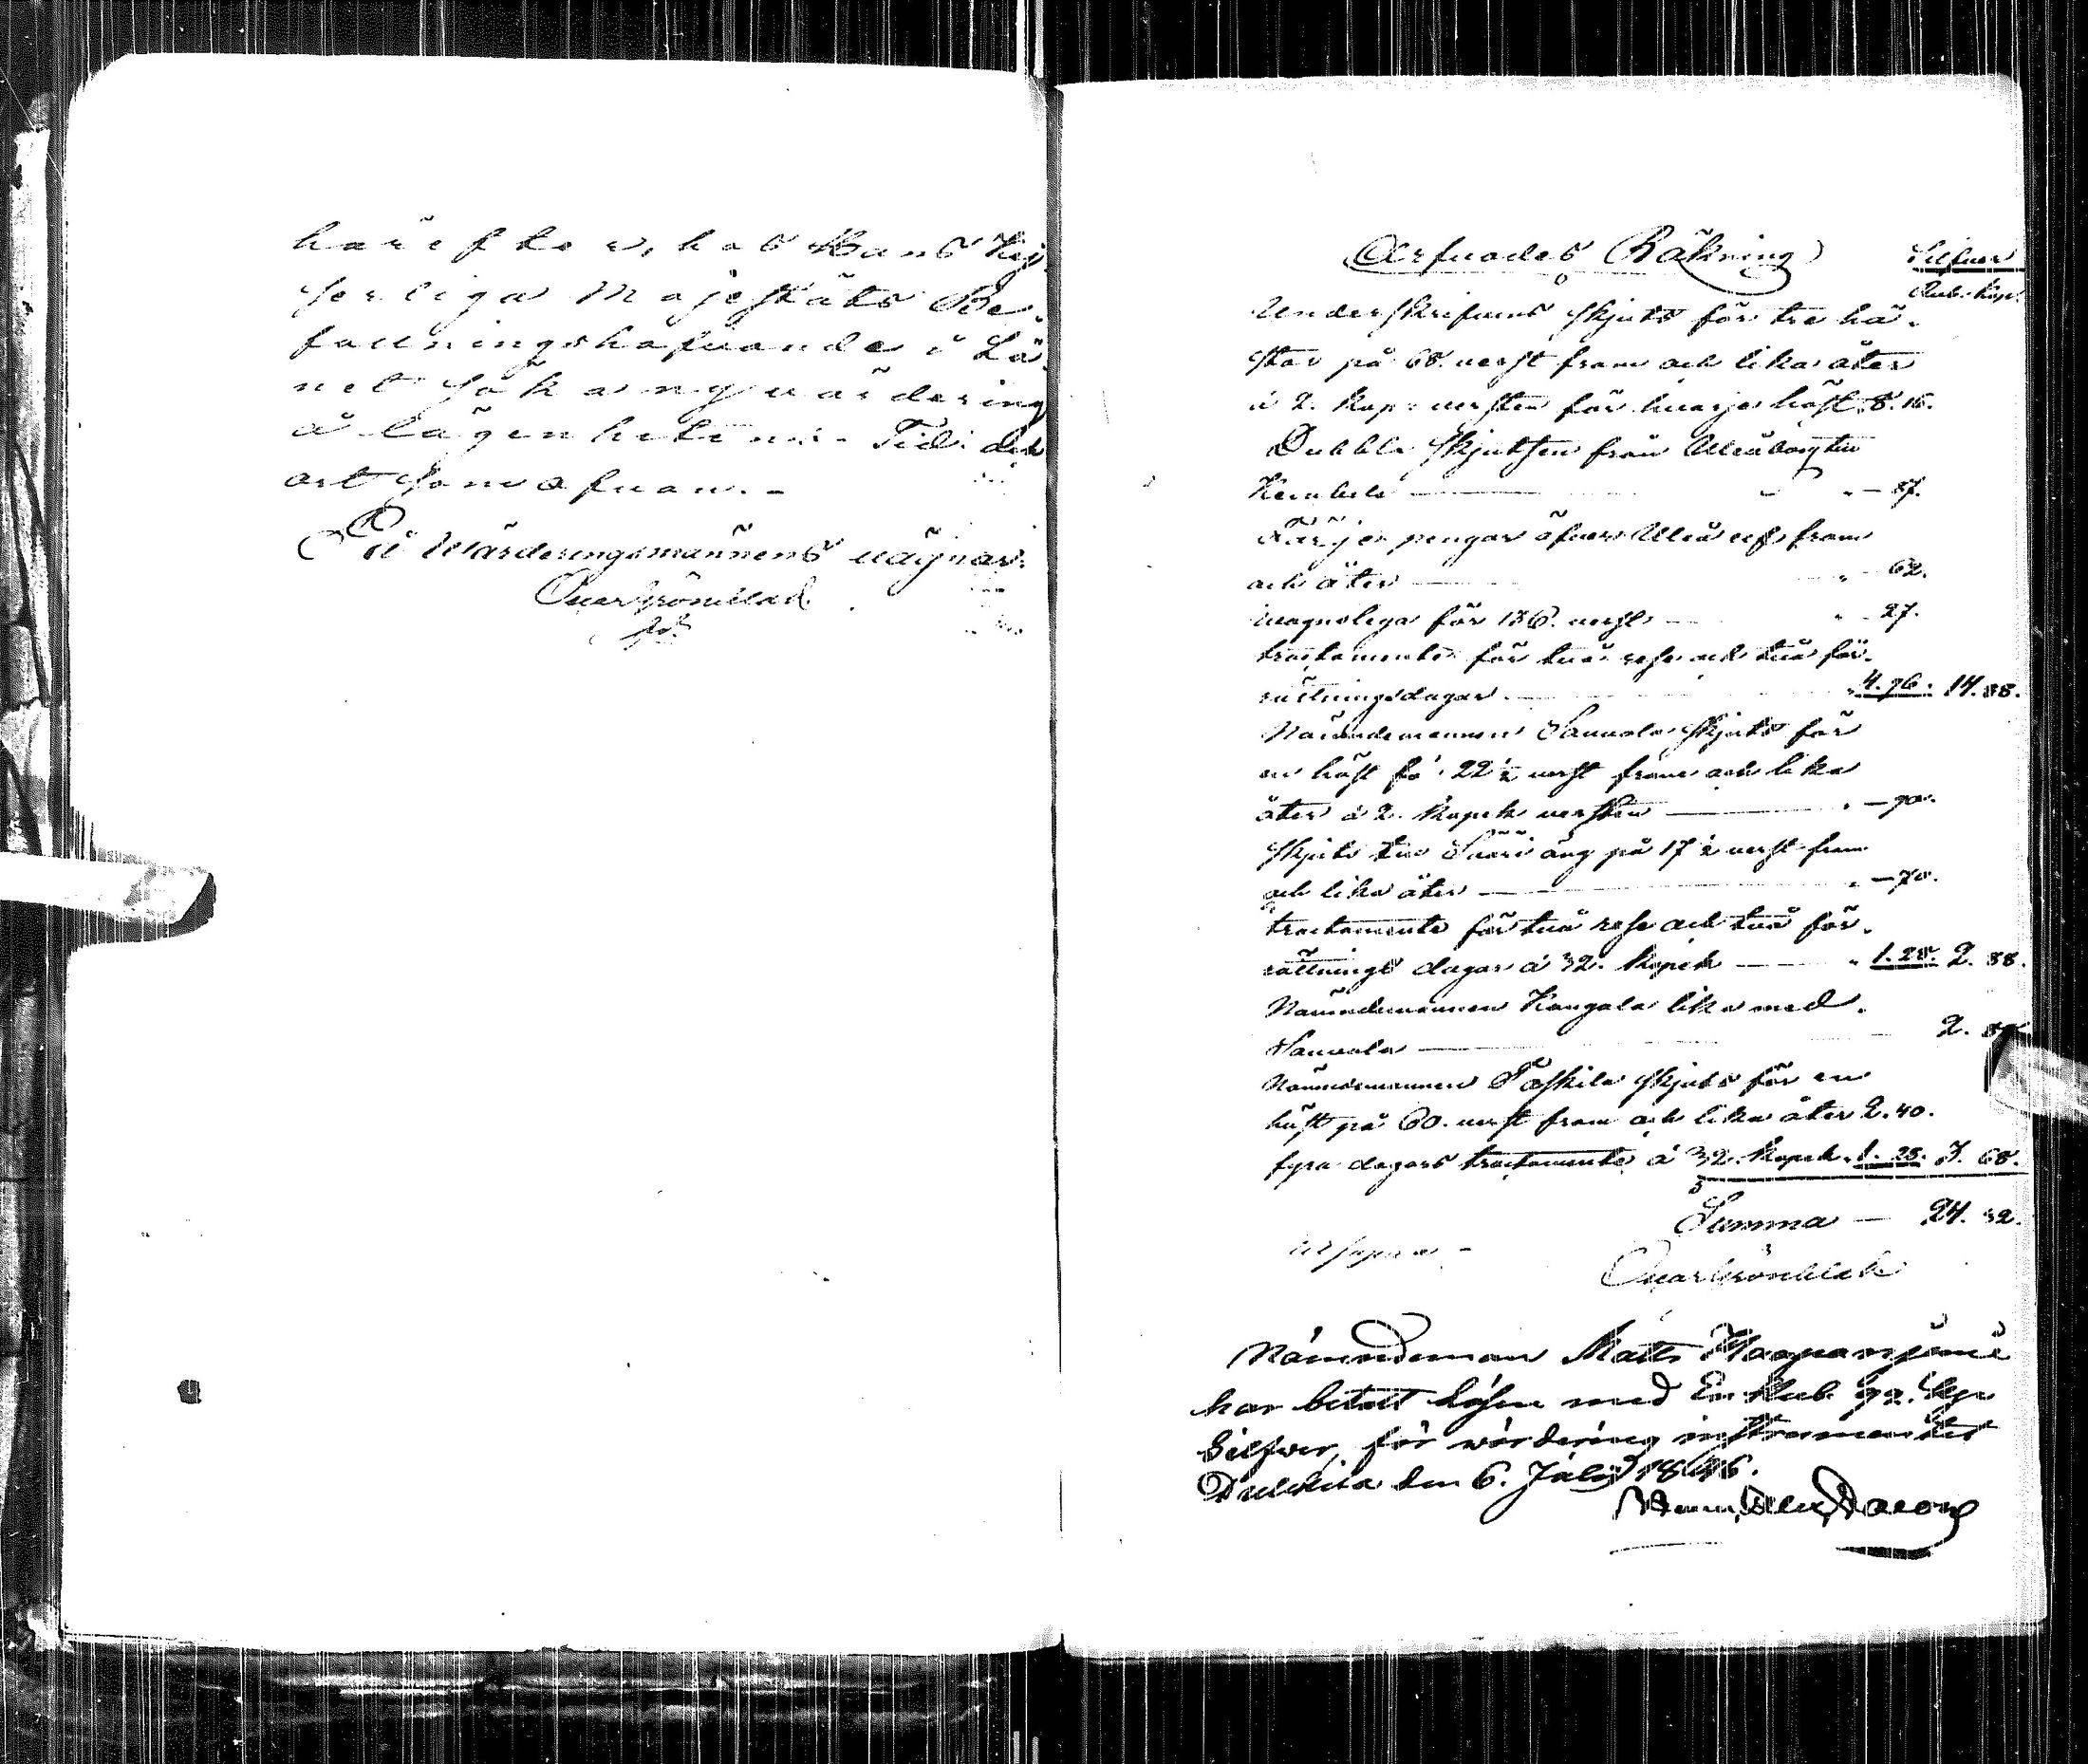 härefter, hos Hans Kej-
serliga Majestäts Be-
fallningshafvande i Lä-
net söka ny värdering
å lägenheten. Tid och
ort som ofvan.-
På Wärderingsmännens vägnar.
Ivar Grönblad
Arfvodes Räkning
Silfver
Rub. Kop.
Underskrifvens skjuts för tre hä-
star på 68. verst fram och lika åter
à 2. kop: versten för hvarje häst 8. 16.
Dubbla skjutsen från Uleåborg till
Kembele — 87.
Färje pengar öfver Uleå elf fram
och åter — 62.
Wagnslega för 136. verst — 27.
tractamente för två rese och två för-
rättningsdagar 4. 96. 14. 88.
Nämndemannen Sauvola skjuts för
en häst på 22½ verst fram och lika
åter à 2. kopek versten — 90.
skjuts till Saari äng på 17½ verst fram
och lika åter — 70.
tractamente för två rese och två för-
rättnings dagar à 32. kopek — 1. 28. 2. 88.
Nämndemannen Kangala lika med
Sauvola — 2. 88.
Nämndemannen Paskila skjuts för en
häst på 60. verst fram och lika åter 2. 40.
fyra dagars tractamente à 32. kopek 1. 28. 3. 68.
Summa — 24. 32.
Ut supra -
Ivar Grönblad
Nämndeman Matts Haapaniemi
har betalt lösen med En Rub. 92. kop
Silfver, för värdering instrumentet
den 6. Julii 1846.